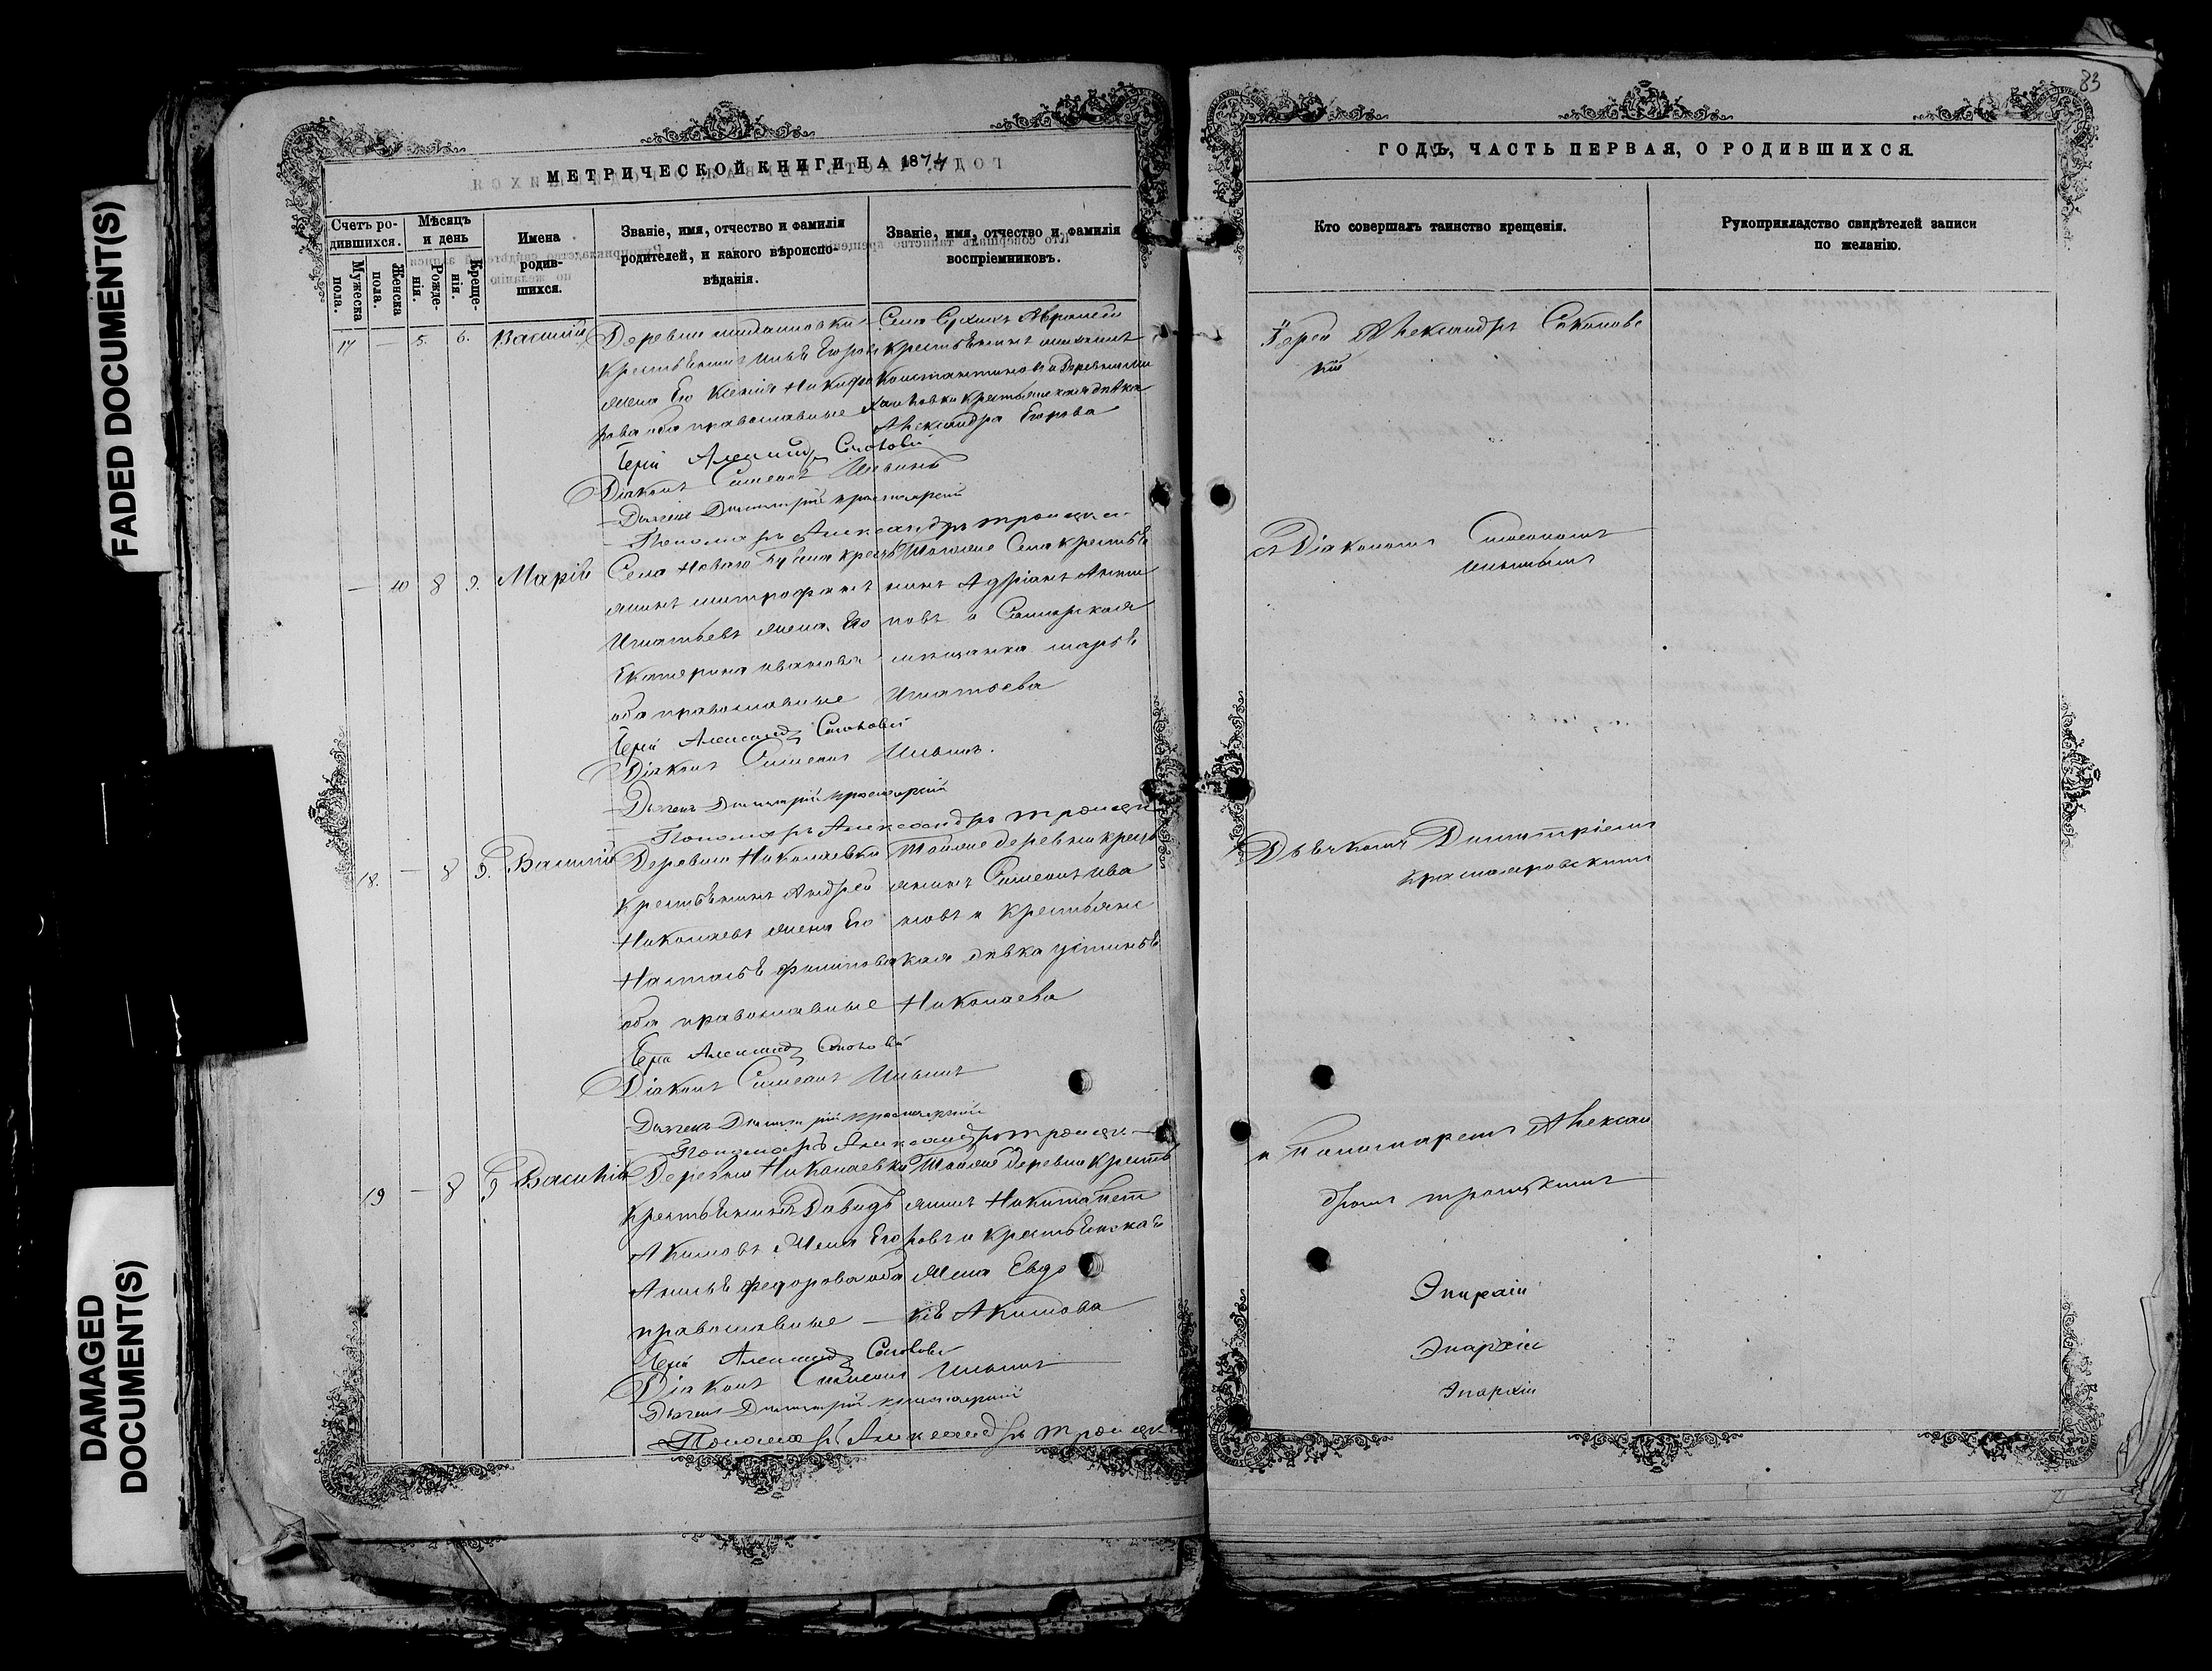 FADED DOCUMENT(S)
DAMAGED
DOCUMENT(S)
МЕТРИЧЕСКОЙ КНИГИ НА 1874
Счетъ ро-
дившихся.
Мужеска
пола.
Женска
пола.
Мѣсяцъ
и день
Рожде-
нія.
Креще-
нія.
Имена
родив-
шихся.
Званіе, имя, отчество и фамилія
родителей, и какого вѣроиспо-
вѣданія.
Званіе, имя, отчество и фамилія
воспріемниковъ.
17 — 5. 6. Василій
Деревни
Крестьянинъ Егоровъ
жена Его Ксенія Никифо
рова оба православные
Села
крестьянинъ
Константиновъ и Деревни
крестьянская дѣвка
Александра Егорова
Іерей Александръ
Діаконъ Симеонъ Ильинъ
Дьячекъ Димитрій
Пономарь Александръ Троицкі
— 10 8 9. Марія
Села Новаго крест
янинъ Митрофанъ
Игнатьевъ жена Его
Екатерина Иванова
оба православные
Тогоже Села крестья
нинъ Адріанъ
повъ и Самарская
мѣщанка Марья
Игнатьева
Іерей Александръ
Діаконъ Симеонъ Ильинъ.
Дьячекъ Димитрій
Пономарь Александръ Троицкі
18. — 8 9. Василій
Деревни Николаевки
крестьянинъ Андрей
Николаевъ жена Его
Наталья Филипова
оба православные
Тойже деревни крест
янинъ Симеонъ Ива
новъ и крестьянс
кая дѣвка Устинья
Николаева
Іерей Александръ
Діаконъ Симеонъ Ильинъ
Дьячекъ Димитрій
Пономарь Александръ Троицкі
19 — 8 9 Василій
Деревни Николаевки
крестьянинъ Давидъ
Акимовъ жена Его
Анисья Федорова оба
православные —
Тойже Деревни Кресть
янинъ Никита Пет
ровъ и крестьянская
жена Евдо
кія Акимова
Іерей Александръ
Діаконъ Симеонъ Ильинъ
Дьячекъ Димитрій
Пономарь Александръ Троицк
83
ГОДЪ, ЧАСТЬ ПЕРВАЯ, О РОДИВШИХСЯ.
Кто совершалъ таинство крещенія.
Рукоприкладство свидѣтелей записи
по желанію.
Іерей Александръ
кій
съ Діакономъ Симеономъ
Ильинымъ
Дьячкомъ Димитріемъ
и Пономаремъ Алексан
дромъ Троицкимъ
Эпархіи
Эпархіи
Эпархіи